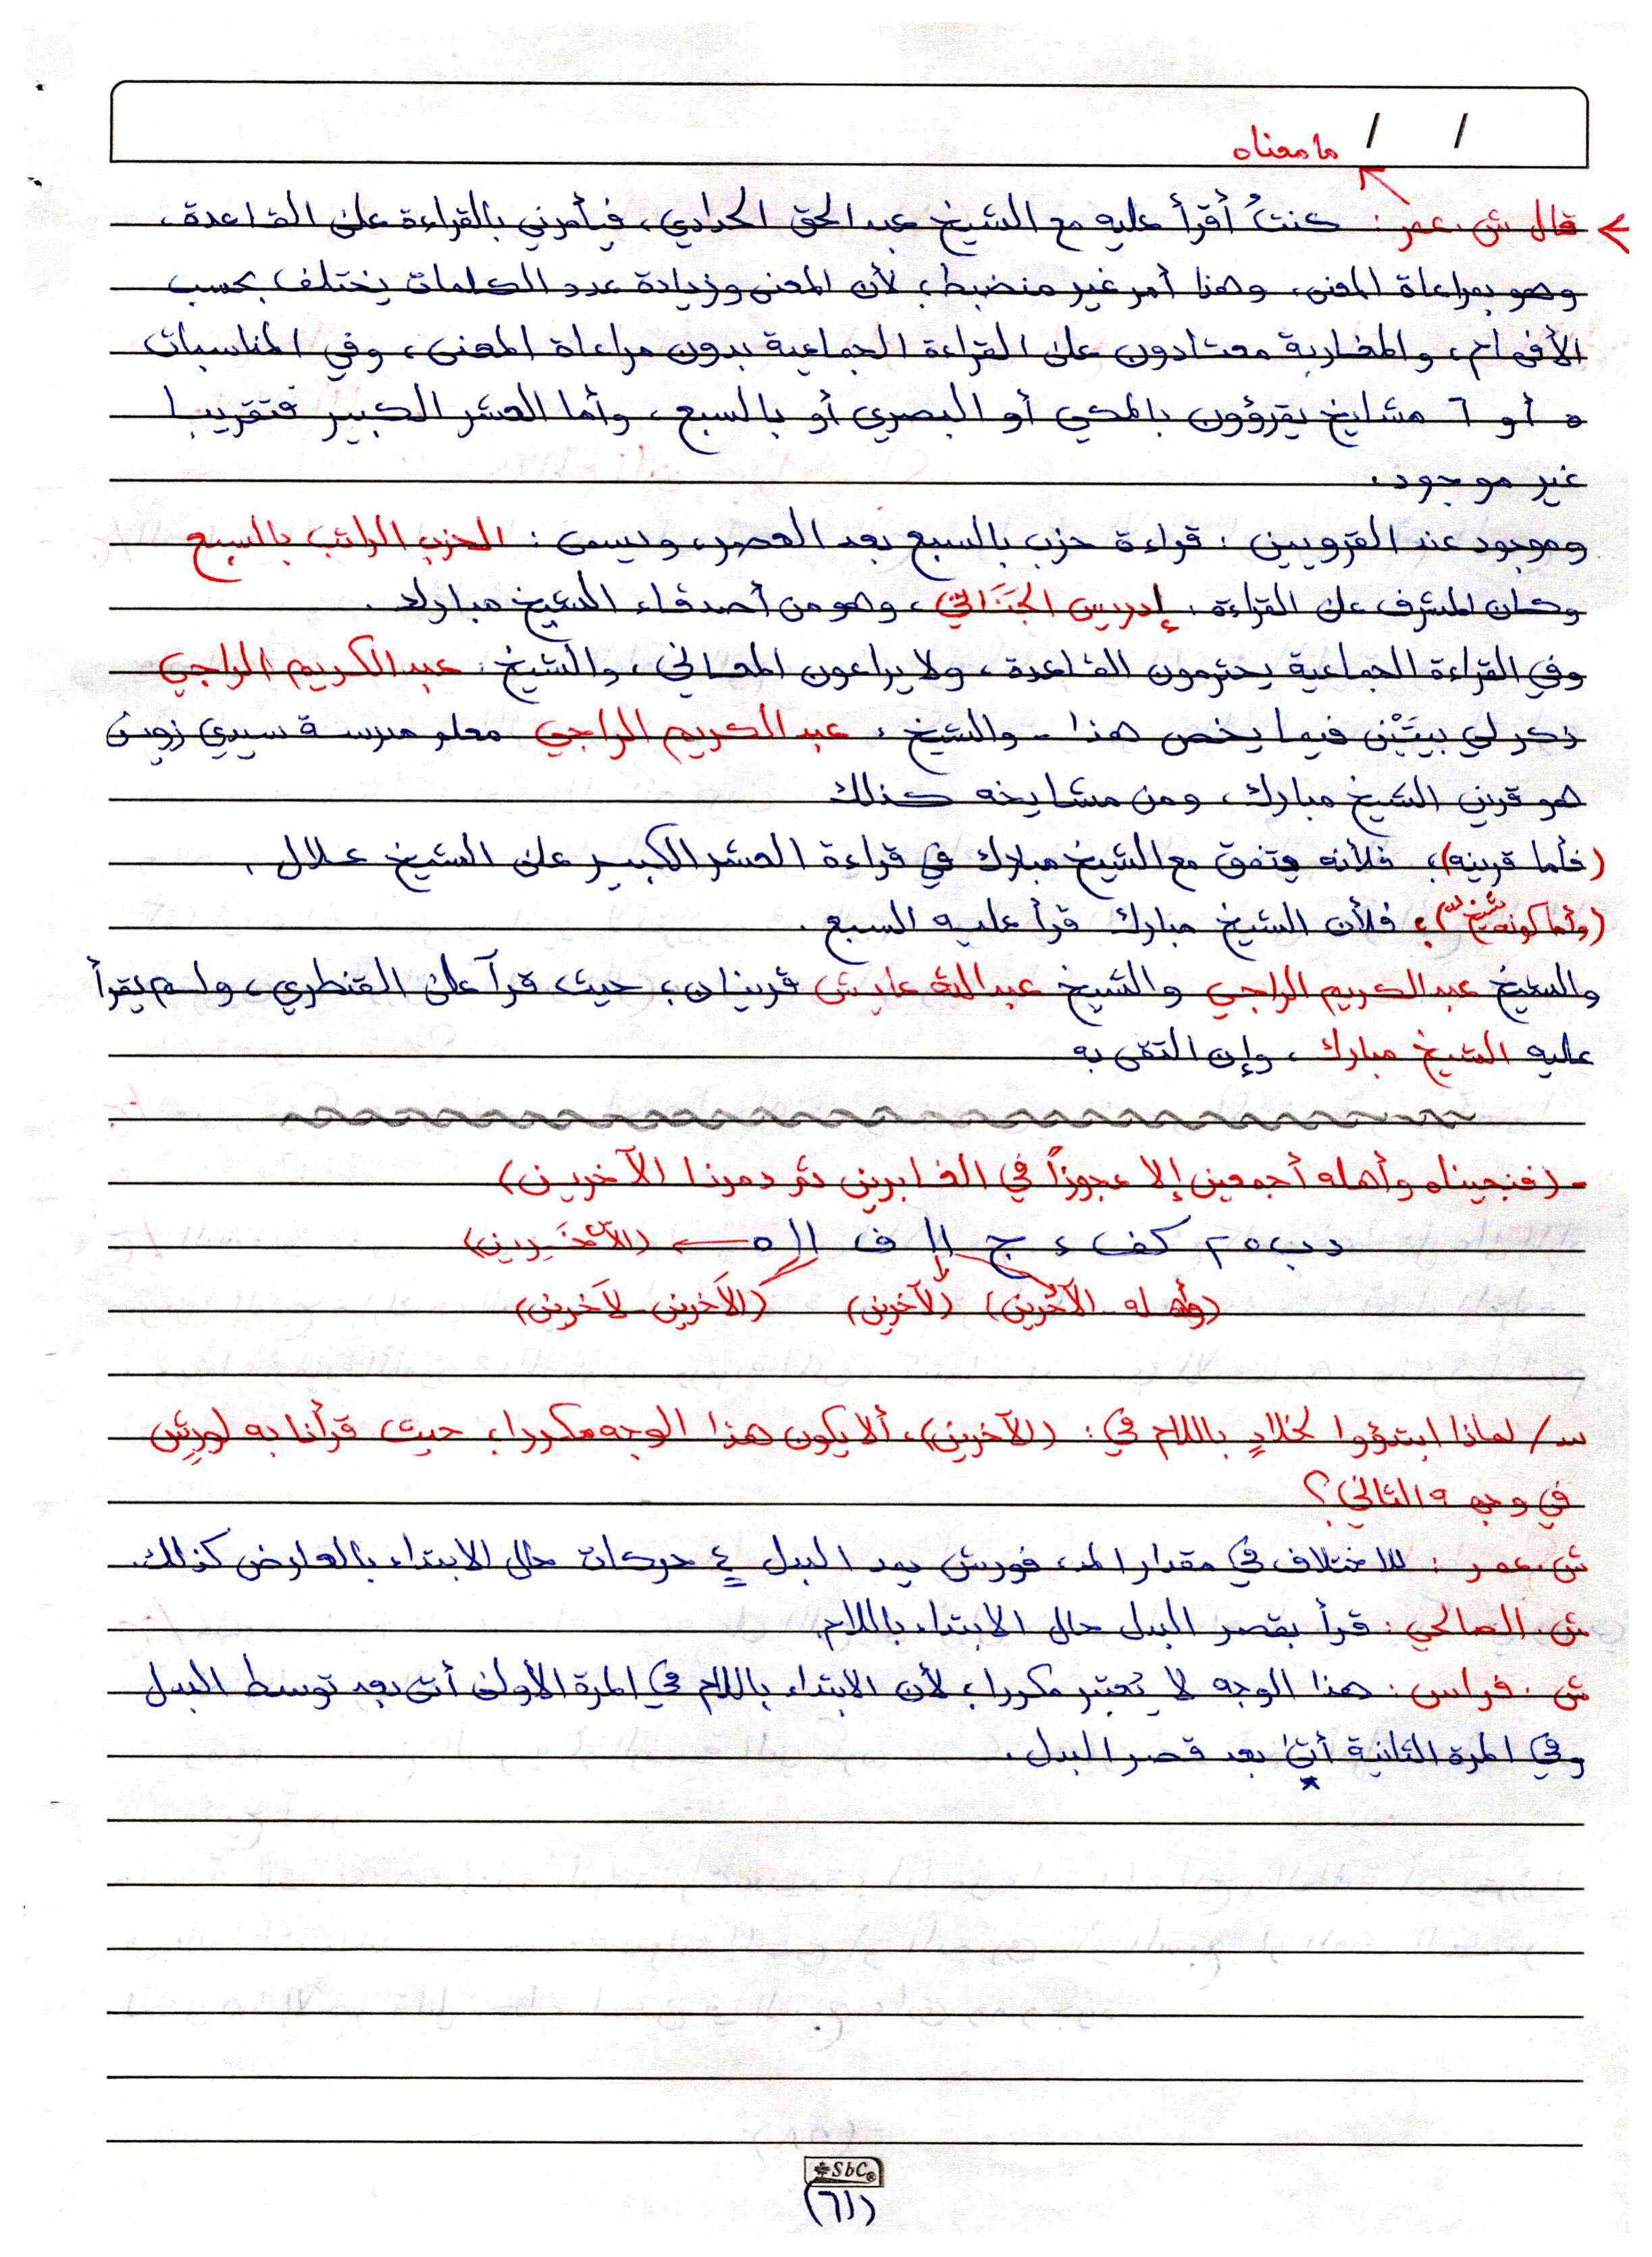 / /
ما معناه
قال ش. عمر: كنتُ أقرأ عليه مع الشيخ عبد الحق الحدادي، فيأمرني بالقراءة على القاعدة،
وهو بمراعاة المعنى، وهذا أمر غير منضبط؛ لأن المعنى وزيادة عدد الكلمات يختلف بحسب
الأفهام، والمغاربة معتادون على القراءة الجماعية بدون مراعاة المعنى، وفي المناسبات
٥ أو ٦ مشايخ يقرؤون بالمكي أو البصري أو بالسبع، وأما العشر الكبير فتقريبا
غير موجود.
وموجود عند القرويين: قراءة حزب بالسبع بعد العصر، ويسمى: الحزب الراتب بالسبع
وكان المشرف على القراءة: إدريس، وهو من أصدقاء الشيخ مبارك.
وفي القراءة الجماعية يحترمون القاعدة، ولا يراعون المعاني، والشيخ: عبد الكريم الراجي
ذكر لي بيتَيْن فيما يخص هذا - والشيخ: عبد الكريم الراجي معلم مدرسة سيدي زوين
هو قرين الشيخ مبارك، ومن مشايخه كذلك
(فأما قرينه)؛ فلأنه يتفق مع الشيخ مبارك في قراءة العشر الكبير على الشيخ علال.
(وأما كونه شيخ له)؛ فلأن الشيخ مبارك قرأ عليه السبع.
والشيخ عبد الكريم الراجي والشيخ عبد الله عايش قرينان؛ حيث قرآ على القنطري، ولم يقرأ
عليه الشيخ مبارك، وإن التقى به
- (فنجيناه وأهله أجمعين إلا عجوزاً في الغابرين ثم دمرنا الآخرين)
د ب ٥ ٢ كف ء ج اا ف اا ٥ ← (الآخرين)
(وأهله.. الآخرين) (لآخرين) (الآخرين - لآخرين)
س/ لماذا ابتدؤوا لخلادٍ باللام في: (الآخرين)، ألا يكون هذا الوجه مكررا، حيث قرأنا به لورش
في وجهه الثاني؟
ش. عمر: للاختلاف في مقدار المد، فورش يمد البدل ٤ حركات حال الابتداء بالعارض كذلك.
ش. الصالحي: قرأ بقصر البدل حال الابتداء باللام.
ش. فراس: هذا الوجه لا يُعتبر مكررا، لأن الابتداء باللام في المرة الأولى أتى بعد توسط البدل
وفي المرة الثانية أتى بعد قصر البدل.
SbC®
(٦١)